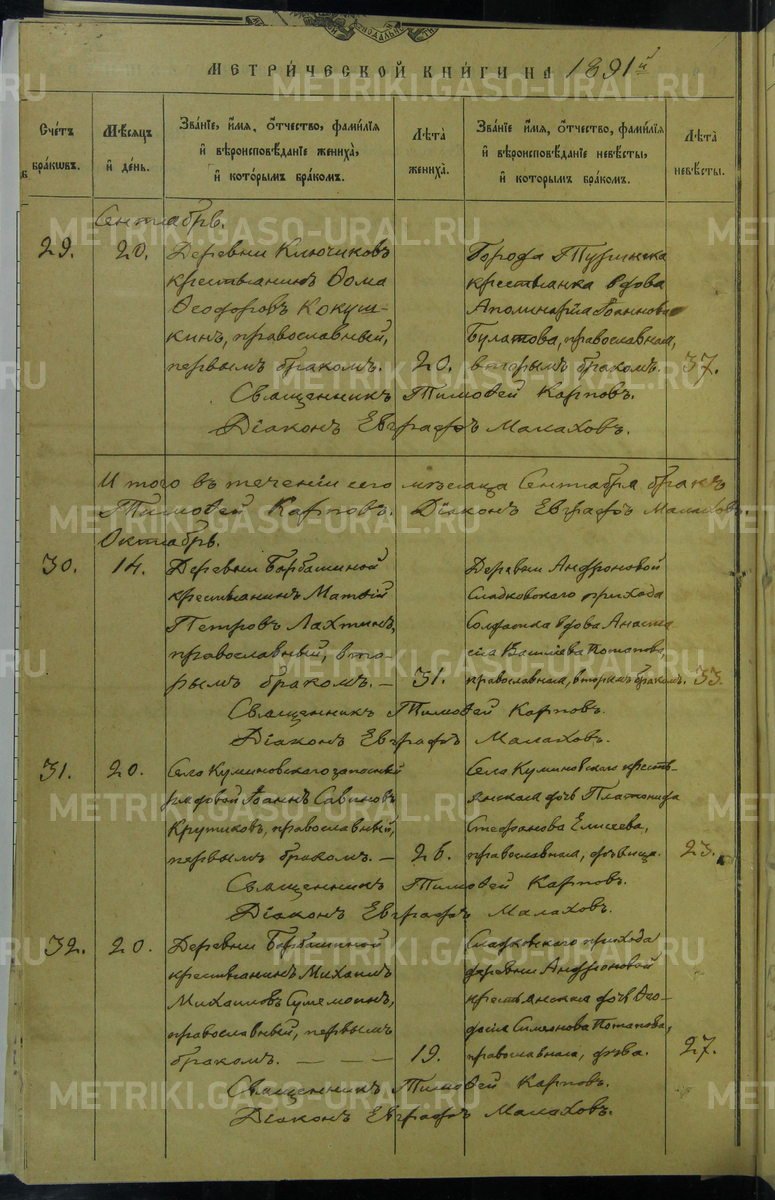 МЕТРИ́ЧЕСКОЙ КНИ́ГИ НА 1891й
Счетъ бра́кѡвъ.
Мѣсяцъ и҆ де́нь.
Зва́нїе, и҆́мя, ѻ҆́тчество, фами́лїя и҆ вѣроисповѣ́данїе жениха̀, и҆ кото́рымъ бра́комъ.
Лѣ́та жениха̀.
Зва́нїе, и҆́мя, ѻ҆́тчество, фами́лїя и҆ вѣроисповѣ́данїе невѣ́сты, и҆ которымъ бра́комъ.
Лѣ́та невѣ́сты.
Сентябрь.
29. 20. Деревни Ключиковъ
крестьянинъ Ѳома
Ѳеодоровъ Кокуш-
кинъ, православный,
первымъ бракомъ. 20.
Города Туринска
крестьянка вдова
Аполинарія Іоаннова
Булатова, православная,
вторымъ бракомъ. 37.
Священникъ Тимоѳей Карповъ.
Діаконъ Евграфъ Малаховъ.
Итого въ теченіи сего мѣсяца Сентября бракъ
Тимоѳей Карповъ. Діаконъ Евграфъ Малаховъ.
Октябрь.
30. 14. Деревни Барбашиной
крестьянинъ Матѳій
Петровъ Лахтинъ,
православный, вто-
рымъ бракомъ. — 31.
Деревни Андроновой
Сладковскаго прихода
Солдатка вдова Анаста
сія Василіева Потапова,
православная, вторымъ бракомъ. 33.
Священникъ Тимоѳей Карповъ.
Діаконъ Евграфъ Малаховъ.
31. 20. Села Куминовскаго запасный
рядовой Іоаннъ Савиновъ
Крутиковъ, православный,
первымъ бракомъ. — 26.
Села Куминовскаго кресть-
янская дочь Платонида
Стефанова Елисеева,
православная, дѣвица. 23.
Священникъ Тимоѳей Карповъ.
Діаконъ Евграфъ Малаховъ.
32. 20. Деревни Барбашиной
крестьянинъ Михаилъ
Михаиловъ
православный, первымъ
бракомъ. — — — 19.
Сладковскаго прихода
деревни Андроновой
крестьянская дочь Ѳео-
Симеонова Потапова,
православная, дѣва. 27.
Священникъ Тимоѳей Карповъ.
Діаконъ Евграфъ Малаховъ.
METRIKI.GASO-URAL.RU